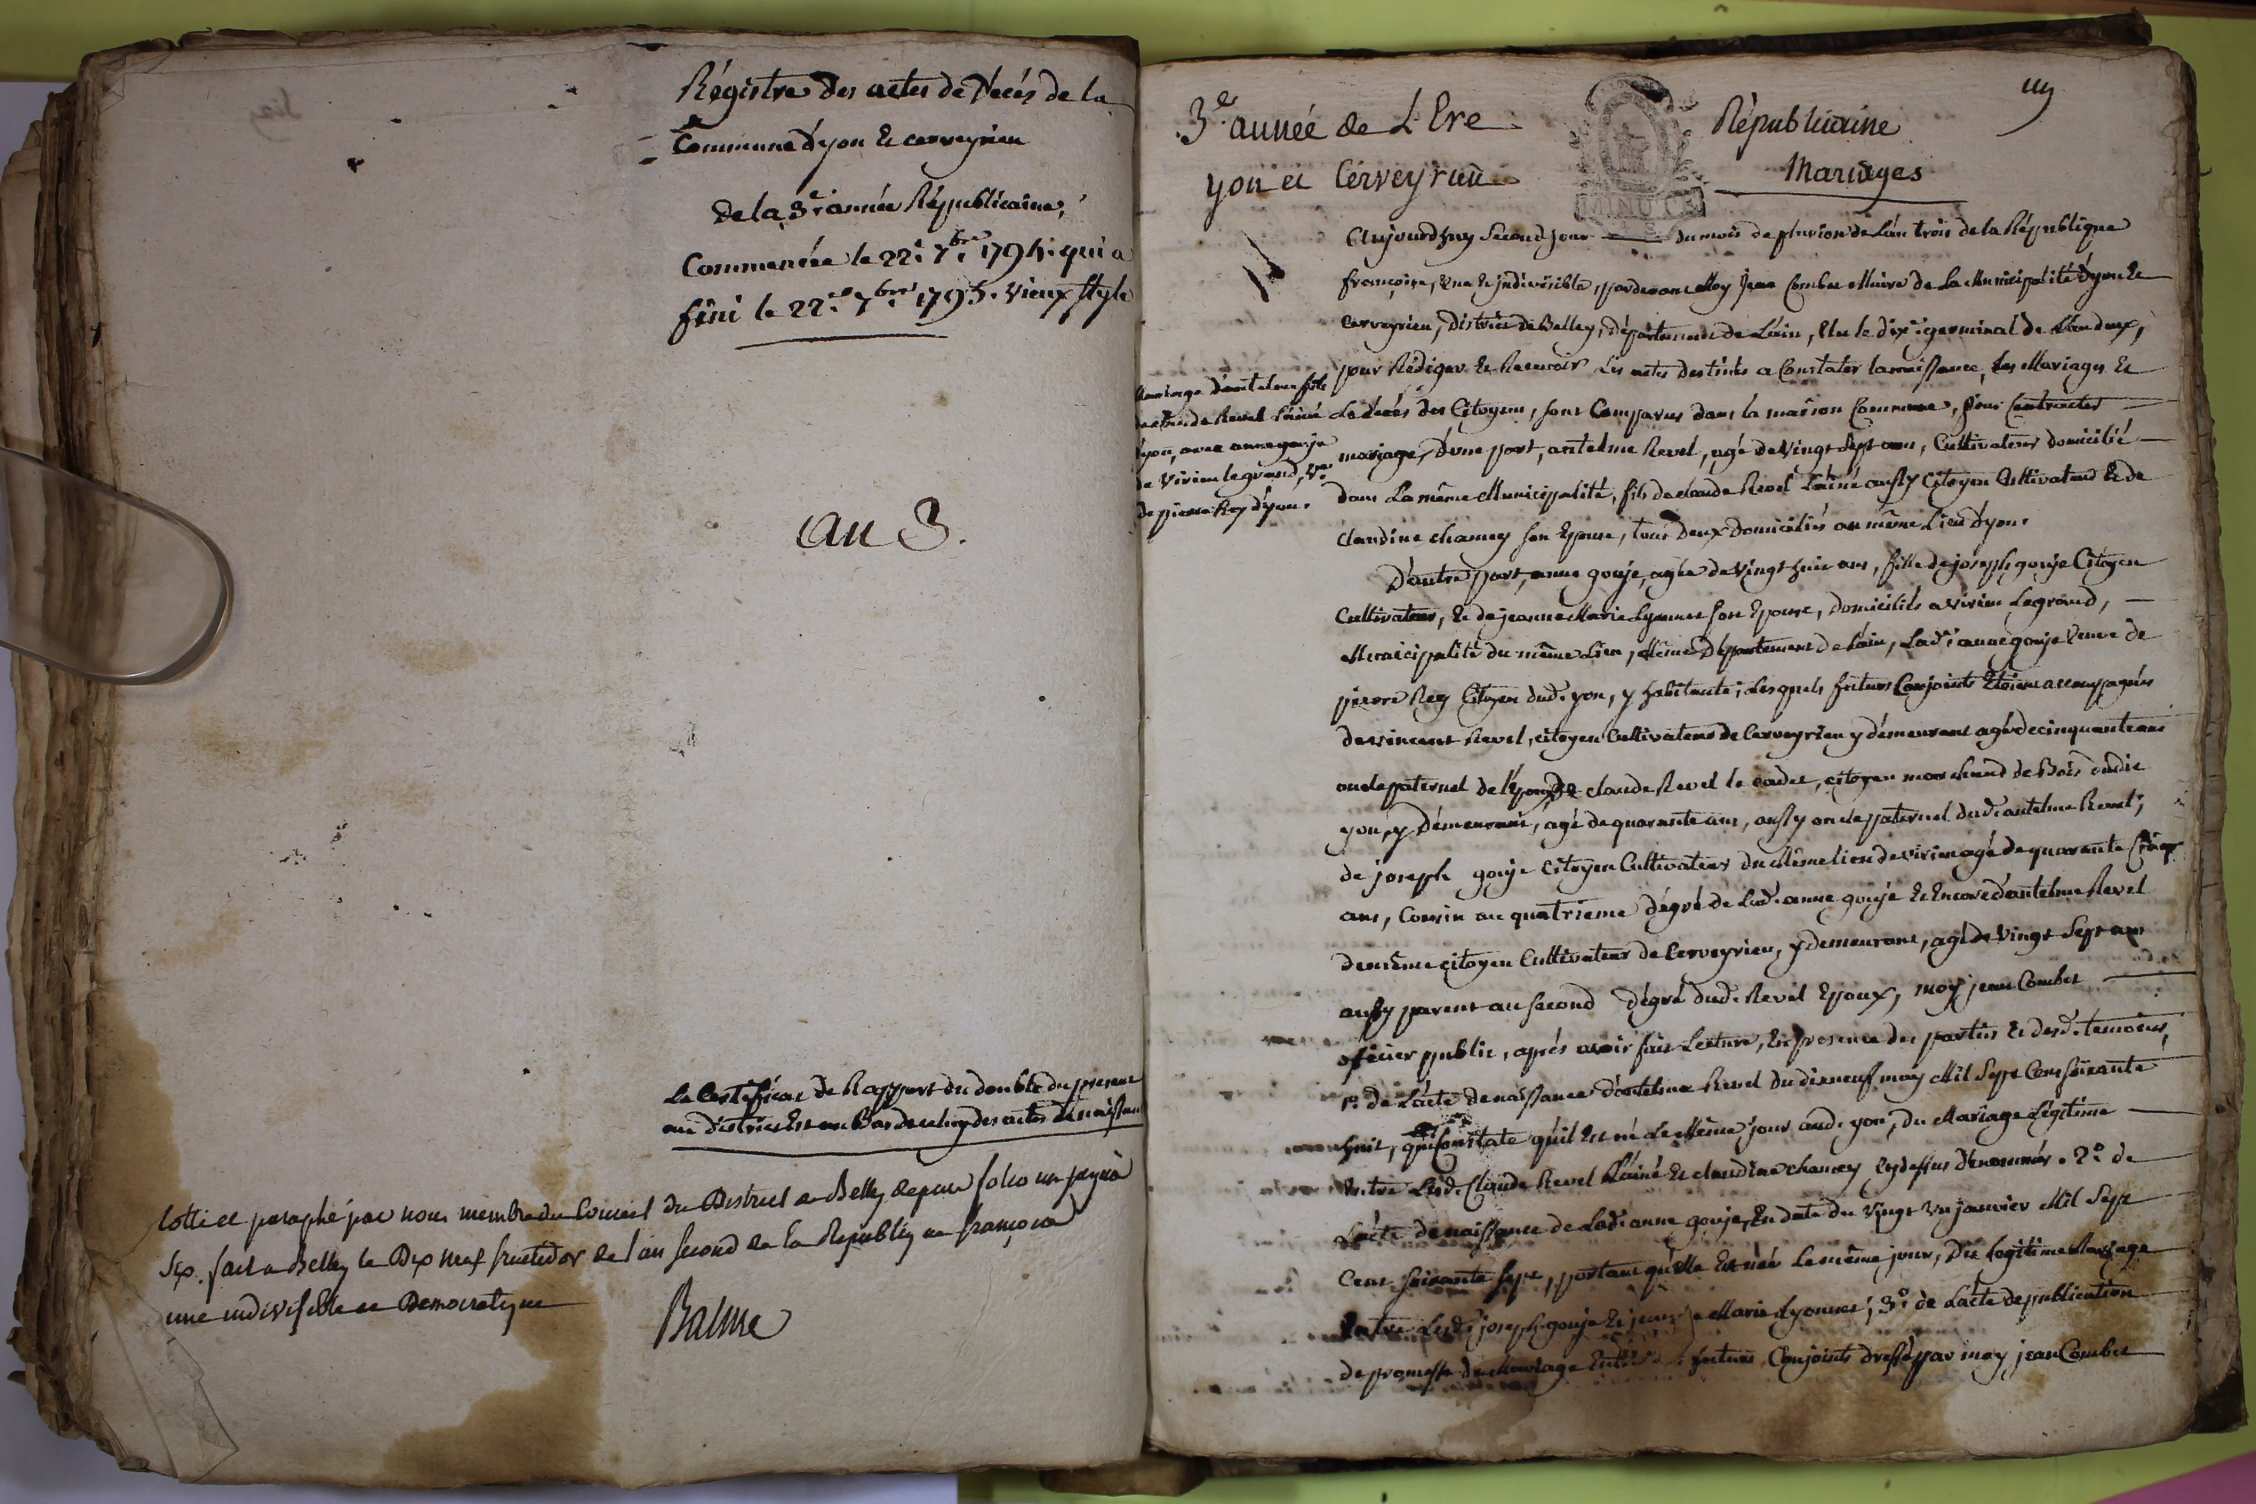 Régistre des actes de Décés de la
Commune d'yon Et cerveyrieu
De la 3e année Républicaine,
Commencée le 22e 7bre 1794. qui a
fini le 22e 7bre 1795. vieux style
an 3.
Le Certificat de Rapport du double du present
au district Est au Bas de celuy des actes de naissance
Cotté et paraphé par nous membre du Conseil du District de Belley depuis folio un jusqu'à
six. fait a Belley le Dix neuf fructidor de l'an second de la Republique françoise
une indivisible et Democratique
Balme
3e année de L'Ere Républicaine
yon et Cerveyrieu Mariages
MINUTE
Aujourd'huy second jour du mois de pluviose de L'an trois de la République
françoise, une Et indivisible, pardevant Moy Jean Combet Maire de La Municipalité d'yon Et
Cerveyrieu, District de Belley, département de L'ain, Elu le dix germinal de L'an deux,
pour Rédiger Et Recevoir Les actes destinés a Constater la naissance, Les Mariages Et
Le décés des Citoyens, sont Comparus dans la maison Commune, pour Contracter
mariage, D'une part, antelme Revel, agé de vingt sept ans, Cultivateur domicilié
dans La même Municipalité, fils de claude Revel L'ainé aussy Citoyen Cultivateur Et de
Claudine chamey son Epouse, tous deux Domiciliés au même Lieu d'yon.
Mariage d'antelme fils
de claude Revel L'ainé
d'yon, avec anne gouje
de Virieu le grand, ve
de pierre Rey d'yon.
D'autre part, anne gouje, agée de vingt huit ans, fille de joseph gouje Citoyen
Cultivateur, Et de jeanne Marie Lyonnet son Epouse, Domiciliés a virieu Legrand,
Municipalité du même Lieu, même Département de L'ain, Lad. anne gouje Veuve de
pierre Rey Citoyen dud. yon, y habitante; Lesquels futurs Conjoints Etoient accompagnés
de vincent Revel, citoyen Cultivateur de Cerveyrieu y démeurant agé de cinquante ans
oncle paternel de l'époux, De claude Revel le cadet, citoyen marchand de Bois dudit
yon, y Démeurant, agé de quarante ans, aussy oncle paternel dud. antelme Revel;
de joseph gouje Citoyen Cultivateur du même lieu de virieu agé de quarante Cinq
ans, Cousin au quatrieme dégré de Lad. anne gouje Et Encore d'antelme Revel
de même citoyen Cultivateur de Cerveyrieu, y demeurant, agé de vingt Sept ans
aussy parent au second dégré dud. Revel Epoux, moy jean Combet
oficier public, aprés avoir fait Lecture, En presence des parties Et desd. temoins,
1o. de L'acte de naissance d'antelme Revel Du dixneuf may Mil Sept Cent soixante
huit, qui Constate qu'il Est né Le Même jour aud. yon, du Mariage Légitime
Entre Lesd. Claude Revel L'ainé Et claudine chamey cy dessus dénommés. 2o. de
L'acte de naissance de Lad. anne gouje, En date du vingt un janvier Mil Sept
Cent soixante sept, portant qu'elle Est née Le même jour, Du Legitime Mariage
Entre Lesd. joseph gouje Et jeanne Marie Lyonnet; 3o. de L'acte de publication
de promesse de Mariage Entre futurs Conjoints dressé par moy jean Combet